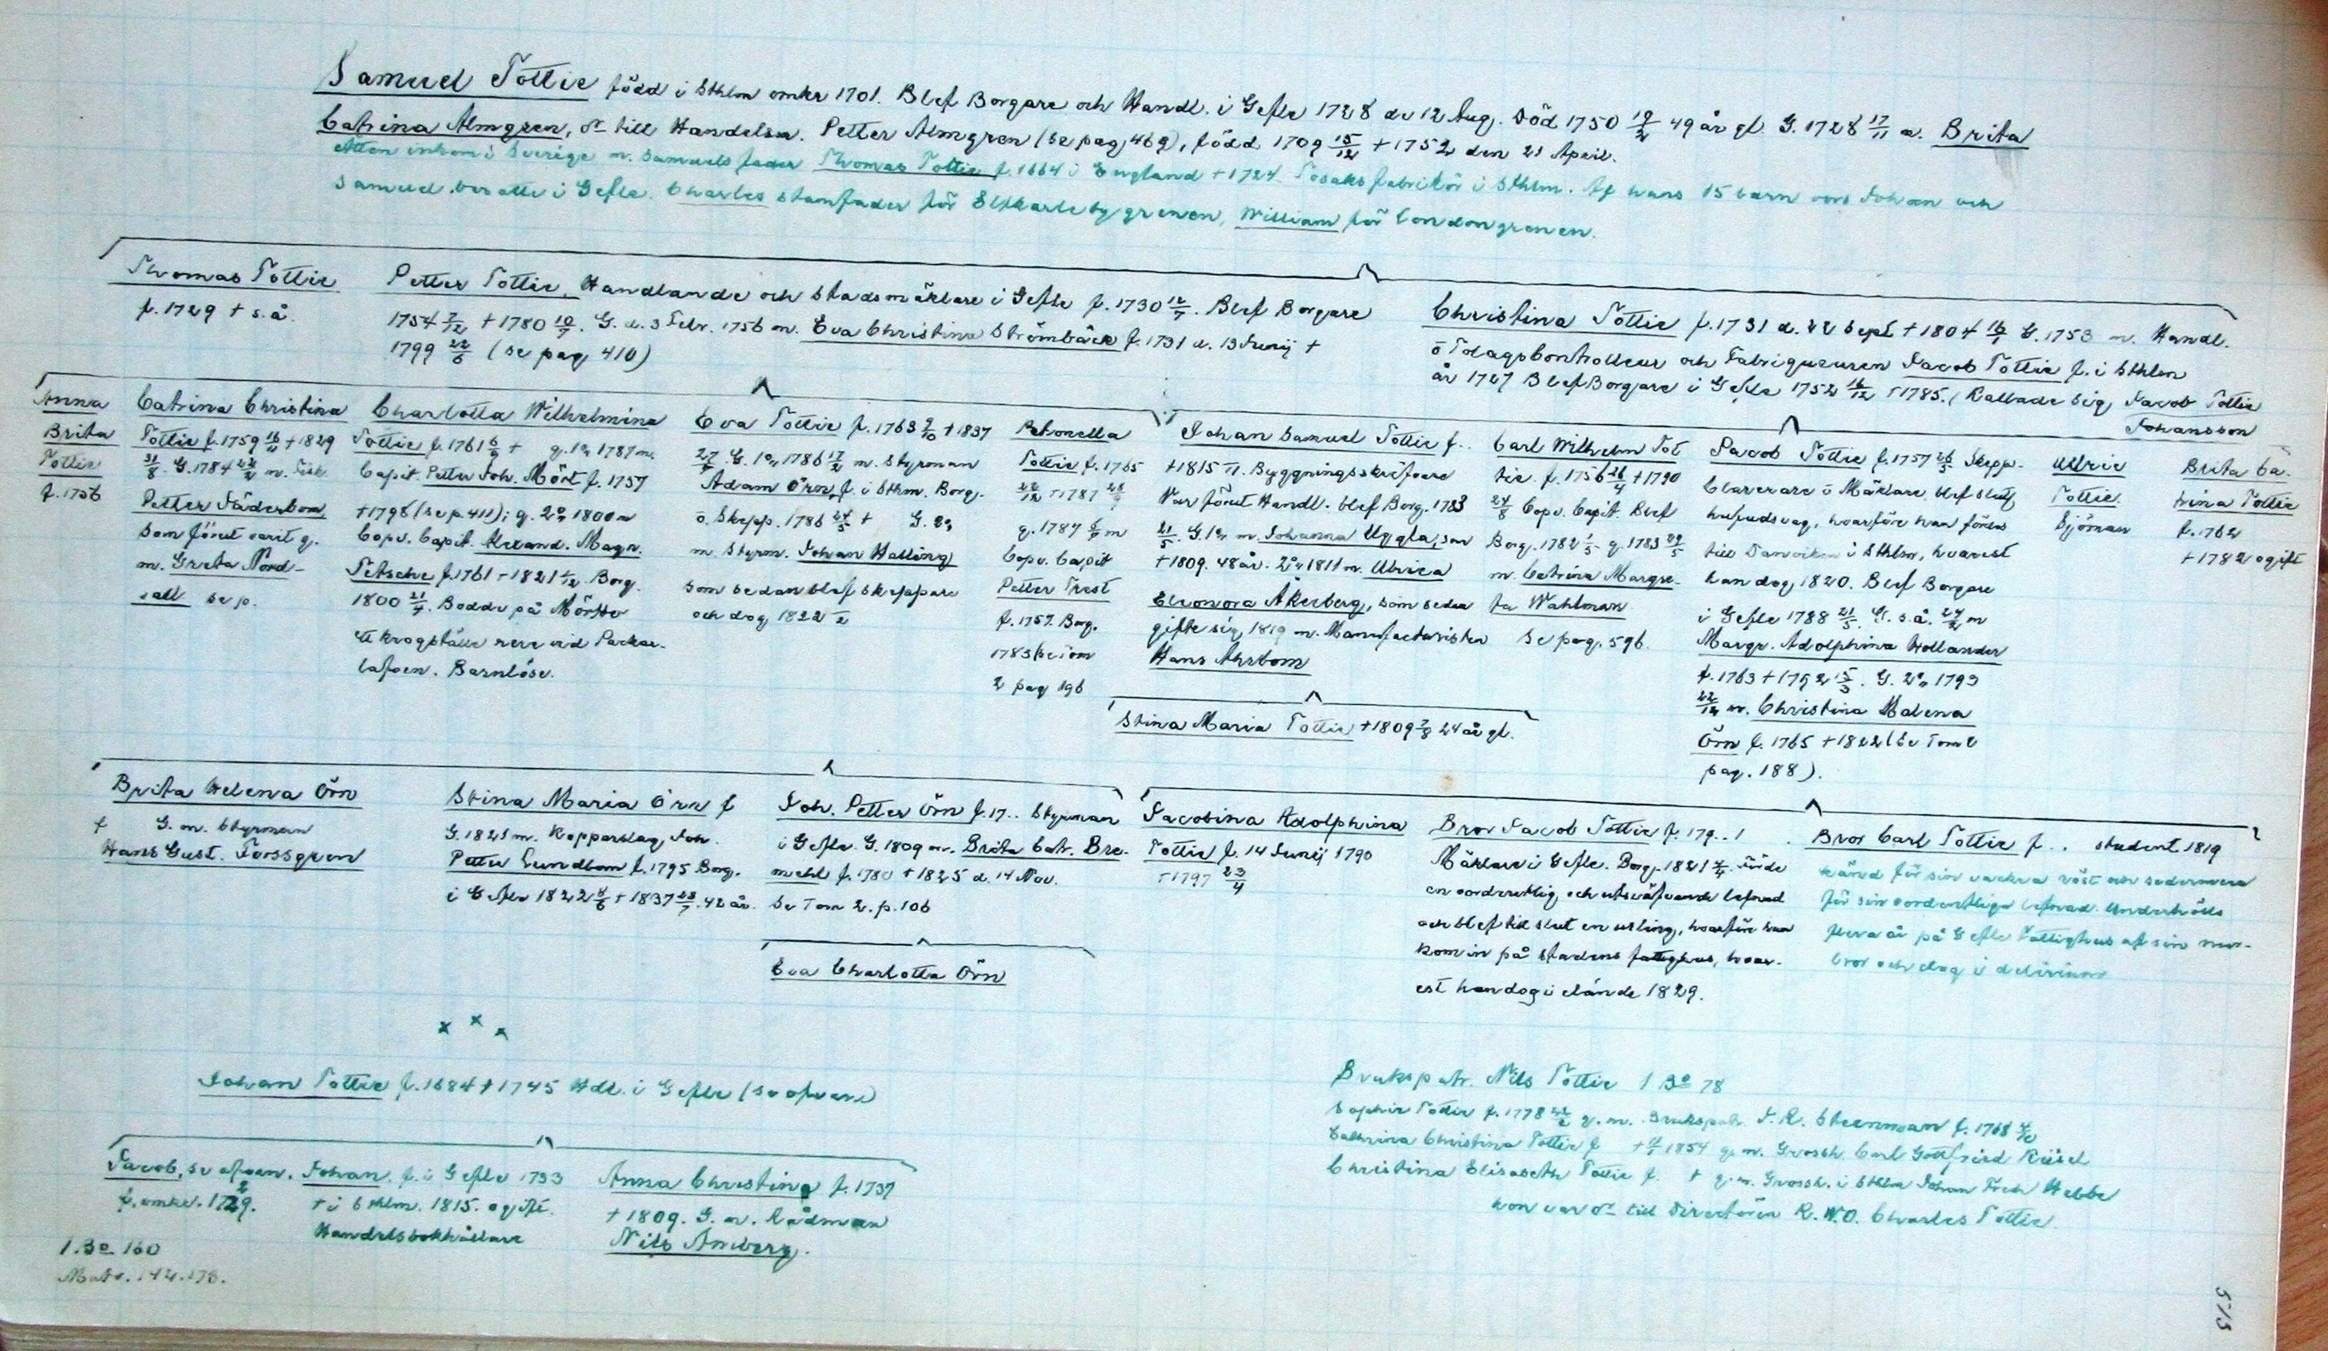 Samuel Tottie född i Sthlm omkr 1701. Blef Borgare och Handl. i Gefle 1728 du 12 Aug. Död 1750 19/2 49 år gl. G. 1728 17/11 m. Brita
Catrina Almgren, dr till Handelsm. Petter Almgren (se pag 469), född 1709 15/12 + 1752 den 21 April.
Ätten inkom i Sverige m. Samuels fader Thomas Tottie f. 1664 i England + 1724 Tobaksfabrikör i Sthlm. Af hans 15 barn voro Johan och
Samuel bosatte i Gefle. Charles stamfader för Elfkarlebygrenen, William för Londongrenen.
Thomas Tottie
f. 1729 + s.å.
Petter Tottie, Handlande och Stadsmäklare i Gefle f. 1730 12/7. Blef Borgare
1754 7/12 + 1780 10/7. G. d. 3 Febr. 1756 m. Eva Christina Strömbäck f. 1731 d. 13 Junij +
1799 22/6 (se pag 410)
Christina Tottie f. 1731 d. 22 Sept + 1804 16/1 G. 1753 m. Handl.
o Tolagskontrolleur och Fabriqueuren Jacob Tottie f. i Sthlm
år 1727 Blef Borgare i Gefle 1752 16/12 + 1785. (Kallade sig Jacob Tottie
Johansson
Anna
Brita
Tottie
f. 1756
Catrina Christina
Tottie f. 1759 16/11 + 1829
31/8. G. 1784 22/2 m. Fisk.
Petter Söderbom
som förut varit g.
m. Greta Nord-
vall se p.
Charlotta Wilhelmina
Tottie f. 1761 6/2 + g. 1o 1787 m.
Capit. Petter Joh. Mört f. 1757
+ 1798 (se p. 411); g. 2o 1800 m
Copv. Capit. Alexand. Magn.
Fetsche f. 1761 + 1821 1/12. Borg.
1800 21/4. Bodde på Mörtto
krogställe nere vid
lafven. Barnlöse.
Eva Tottie f. 1763 9/10 + 1837
27/7. G. 1o 1786 17/2 m. Styrman
Adam Örn f. i Sthlm. Borg.
o. Skepp. 1786 24/5 + G. 2o
m. Styrm. Johan Halling
som sedan blef skeppare
och dog 1822
Petronella
Tottie f. 1765
22/12 + 1787
g. 1787 m
Copv. Capit
Petter Trest
f. 1757. Borg.
1783 (se Tom
2 pag 196
Johan Samuel Tottie f..
+ 1815 Byggningsskrifvare
Var förut Handl. blef Borg. 1783
21/5. G. 1o m. Johanna Uggla, som
+ 1809. 48 år. 2o 1811 m. Ulrica
Eleonora Åkerberg, som sedan
gifte sig 1819 m. Manufacturisten
Hans Ahrbom
Carl Wilhelm Tot
tie. f. 1756 26/4 + 1790
24/8 Copv. Capit. Blef
Borg. 1782 1/5 g. 1783 29/5
m. Catrina Margre-
ta Wahlman
Se pag. 596.
Jacob Tottie f. 1757 26/5 Skepp-
clarerare o Mäklare, blef slutl.
hufvudsvag, hvarföre han fördes
till Danviken i Sthlm, hvarest
han dog 1820. Blef Borgare
i Gefle 1788 21/5. G. s.å. 27/2 m
Margr. Adolphina Hollander
f. 1763 + 1792 15/3. G. 2o 1793
22/12 m. Christina Malena
Örn f. 1765 + 1822 (se Tom 2
pag. 188).
Ulric
Tottie.
Sjöman
Brita Ca-
trina Tottie
f. 1762
+ 1782 ogift
Stina Maria Tottie + 1809 7/8 24 år gl.
Brita Helena Örn
f G. m. Styrman
Hans Gust. Forssgren
Stina Maria Örn f
G. 1821 m. Kopparslag. Joh.
Petter Lundbom f. 1795 Borg.
i Gefle 1822 4/6 + 1837 23/7. 42 år.
Joh. Petter Örn f. 17.. Styrman
i Gefle. G. 1809 m. Brita Catr. Bre-
mehl f. 1780 + 1825 d. 14 Nov.
Se Tom 2. p. 106
Eva Charlotta Örn
Jacobina Adolphina
Tottie f. 14 Junij 1790
+ 1797 23/4
Bror Jacob Tottie f. 179..!
Mäklare i Gefle. Borg. 1821 Förde
en oordentlig och utsväfvande lefnad
och blef till slut en usling, hvarföre han
kom in på stadens fattighus, hvar-
est han dog i elände 1829.
Bror Carl Tottie f.. student 1819
känd för sin vackra röst och sedermera
för sin oordentliga lefnad. Underhölls
flera år på Gefle Fattighus af sin mor-
bror och dog i delirium
x x x
Johan Tottie f. 1684 + 1745 Hdl. i Gefle (se ofvan)
Jacob, se ofvan.
f. omkr. 1729.
Johan, f. i Gefle 1733
+ i Sthlm. 1815. ogift.
Handelsbokhållare
Anna Christina f. 1737
+ 1809. G. m. Rådman
Nils Amberg.
1 Bo 160
Matr. 142.178.
Brukspatr. Nils Tottie 1 Bo 78
Sophie Tottie f. 1778 g. m. Brukspatr. J. R. Steenman f. 1768
Cathrina Christina Tottie f + 1854 g. m. Grossh. Carl Gottfried
Christina Elisabeth Tottie f. + g. m. Grossh. i Sthlm Johan Fredr Hebbe
hon var dr till Directören R.W.O. Charles Tottie.
513